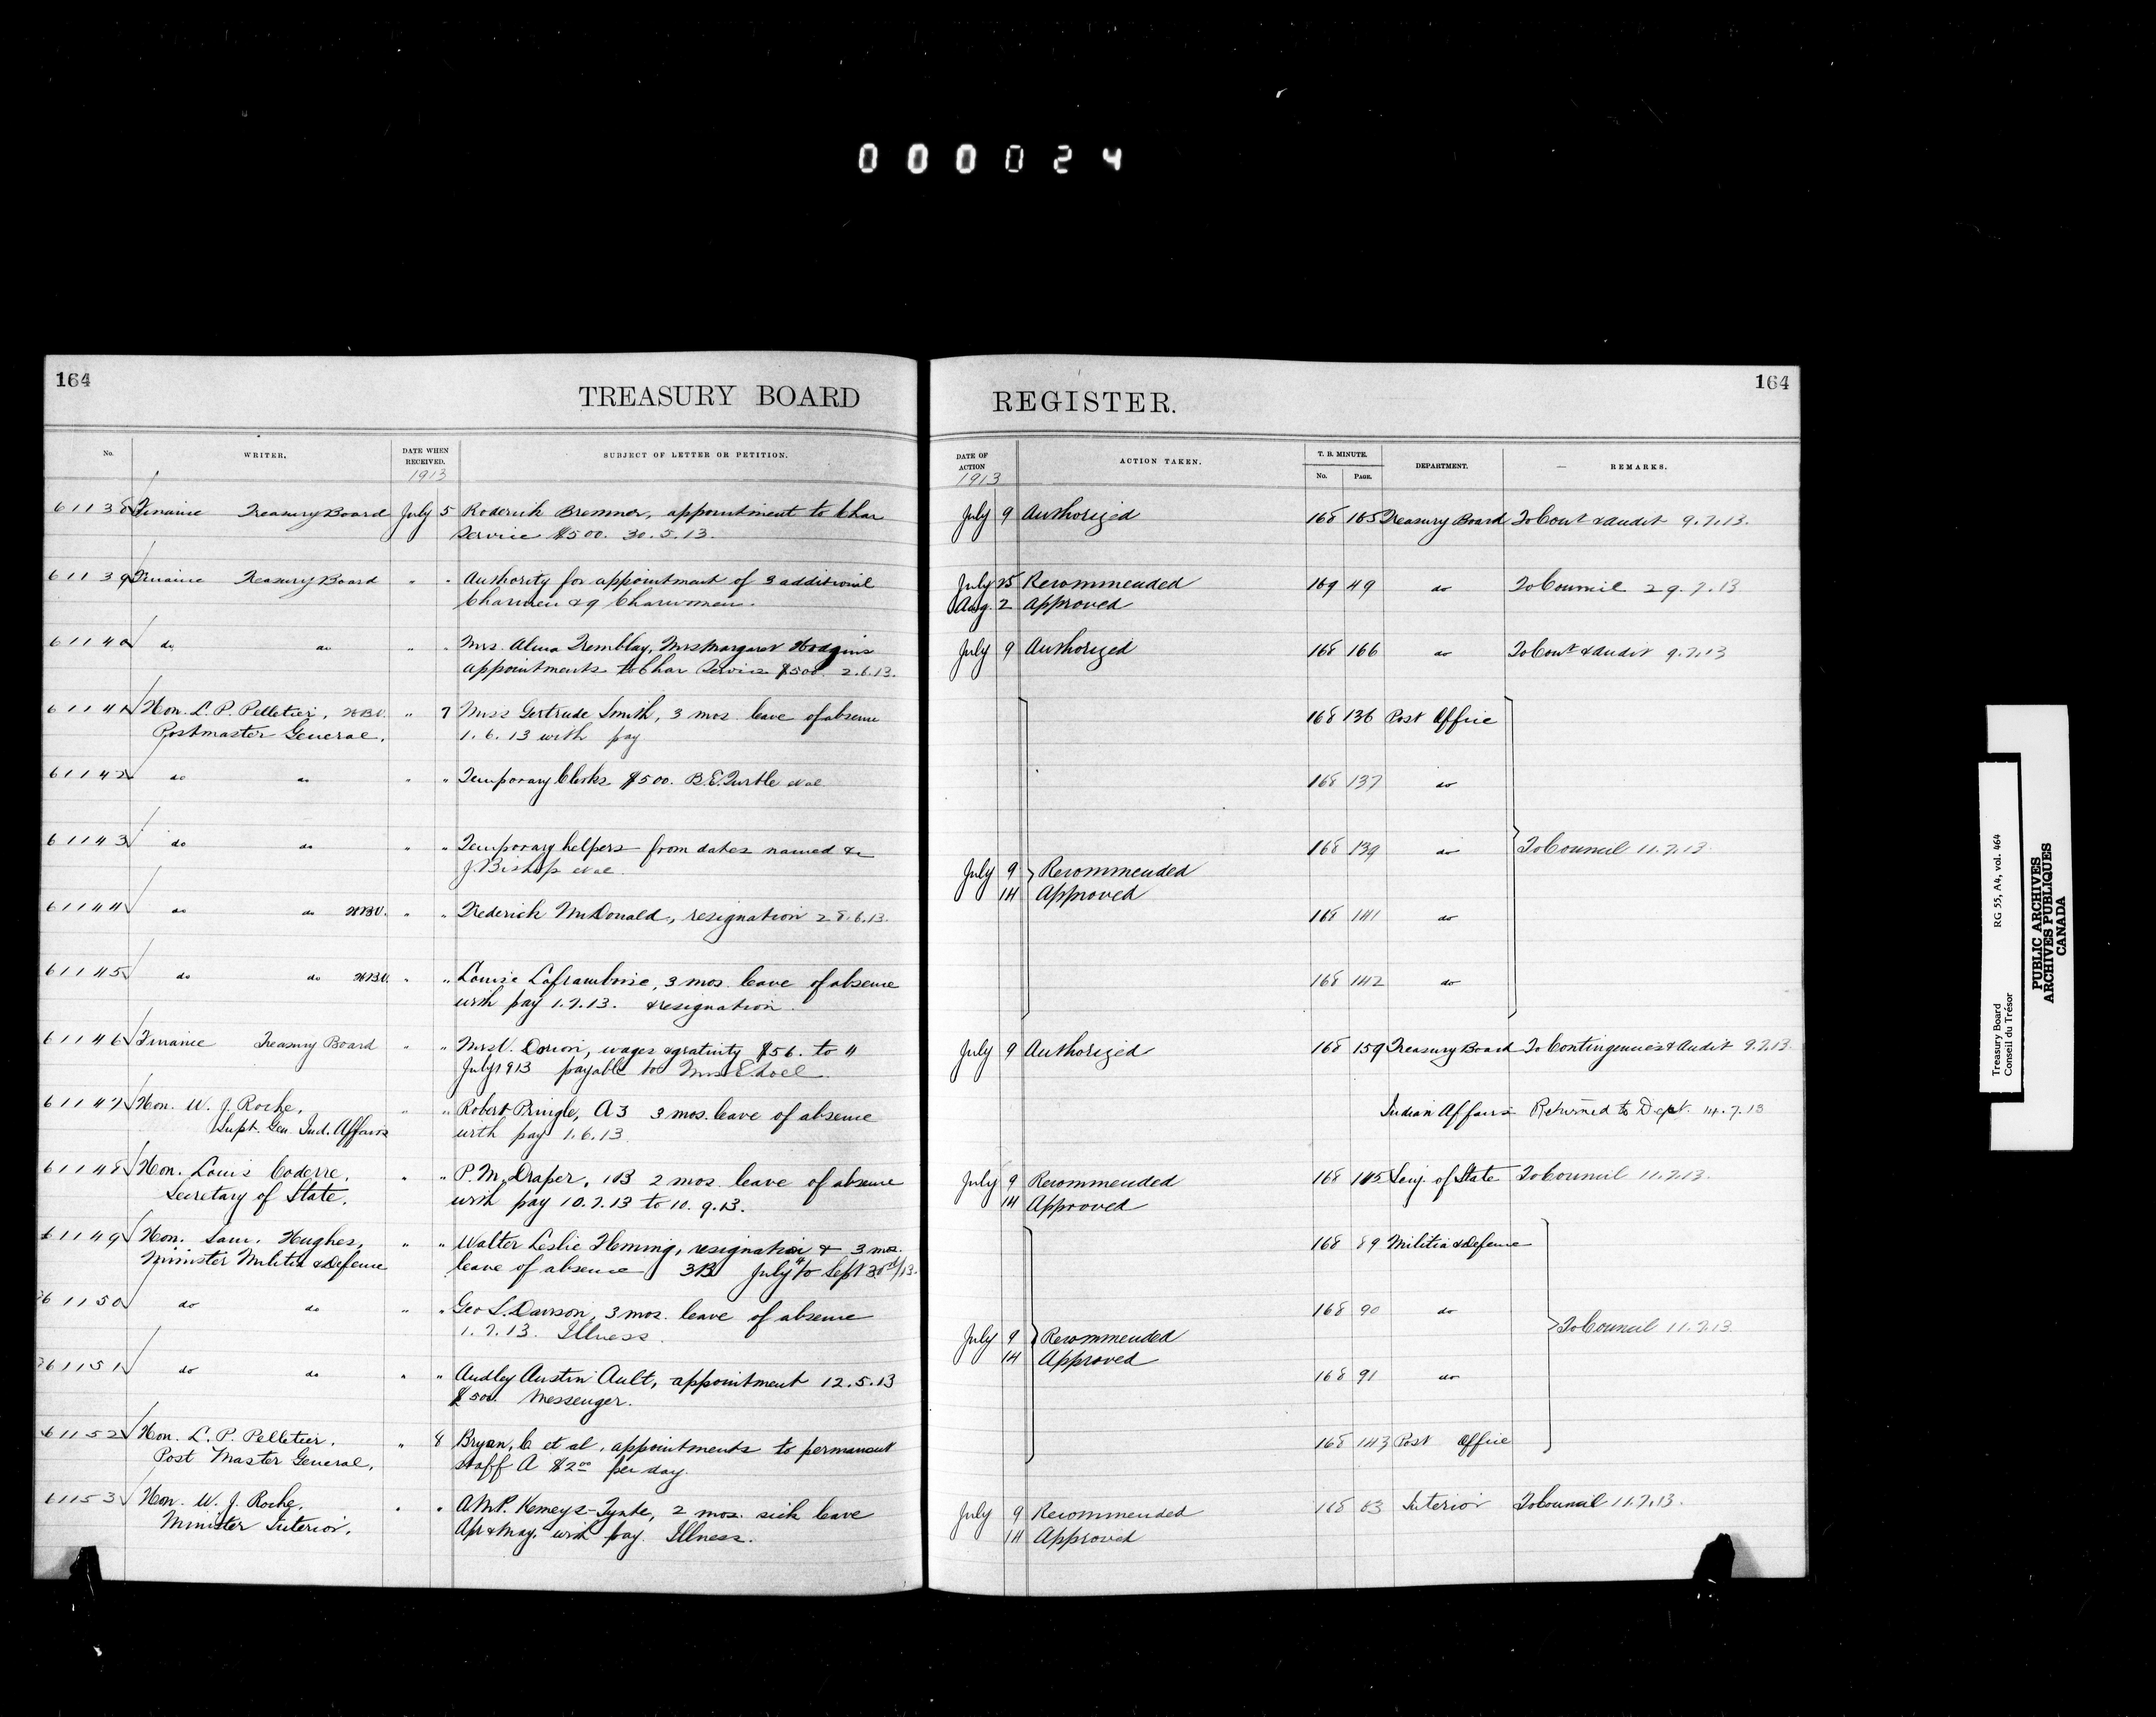 000024
164
TREASURY BOARD
No.
WRITER.
DATE WHEN
RECEIVED.
1913
SUBJECT OF LETTER OR PETITION.
61138 Finance Treasury Board July 5 Roderick Bremner, appointment to Char
Service $500. 30.5.13.
61139 Finance Treasury Board " " Authority for appointment of 3 additional
Charmen & 9 Charwomen.
61140 do do " " Mrs. Alma Tremblay, Mrs Margaret Hodgins
appointments to Char Service $500. 2.6.13.
61141 Hon. L. P. Pelletier, " 7 Miss Gertrude Smith, 3 mos. leave of absence
Postmaster General. 1.6.13 with pay
61142 do do " " Temporary Clerks $500. B.E. Turtle et al
61143 do do " " Temporary helpers from dates named &c
J. Bishop et al.
61144 do do " " Frederick McDonald, resignation 28.6.13.
61145 do do " " Louise Laframboise, 3 mos. leave of absence
with pay 1.7.13. & resignation.
61146 Finance Treasury Board " " Mrs V. Dorion, wages & gratuity $56. to 4
July 1913 payable to Mrs E. Loel.
61147 Hon. W. J. Roche, " " Robert Pringle, A3 3 mos. leave of absence
Supt. Gen. Ind. Affairs with pay 1.6.13.
61148 Hon. Louis Coderre, " " P. M. Draper, 1B 2 mos. leave of absence
Secretary of State. with pay 10.7.13 to 10.9.13.
61149 Hon. Sam. Hughes, " " Walter Leslie Fleming, resignation & 3 mos.
Minister Militia & Defence leave of absence 3B July to Sept 30th/13.
61150 do do " " Geo L. Dawson, 3 mos. leave of absence
1.7.13. Illness.
61151 do do " " Audley Austin Ault, appointment 12.5.13
$500. Messenger.
61152 Hon. L. P. Pelletier, " 8 Bryan, C et al, appointments to permanent
Post Master General. staff A $2.00 per day.
61153 Hon. W. J. Roche, " " A.M.P. Kemeys-Tynte, 2 mos. sick leave
Minister Interior. Apr & May. with pay. Illness.
164
REGISTER.
DATE OF
ACTION
1913
ACTION TAKEN.
T. B. MINUTE.
No. PAGE.
DEPARTMENT.
REMARKS.
July 9 Authorized 168 165 Treasury Board To Cont & Audit 9.7.13.
July 25 Recommended 169 49 do To Council 29.7.13
Aug. 2 Approved
July 9 Authorized 168 166 do To Cont & Audit 9.7.13
168 136 Post Office
168 137 do
168 139 do To Council 11.7.13.
July 9 Recommended
14 Approved
168 141 do
168 142 do
July 9 Authorized 168 159 Treasury Board To Contingencies & Audit 9.7.13.
Indian Affairs Returned to Dept. 14.7.13
July 9 Recommended 168 145 Secy. of State To Council 11.7.13.
14 Approved
168 89 Militia & Defence
168 90 do
To Council 11.7.13.
July 9 Recommended
14 Approved
168 91 do
168 143 Post Office
July 9 Recommended 168 83 Interior To Council 11.7.13.
14 Approved
Treasury Board RG 55, A4, vol. 464
Conseil du Trésor
PUBLIC ARCHIVES
ARCHIVES PUBLIQUES
CANADA